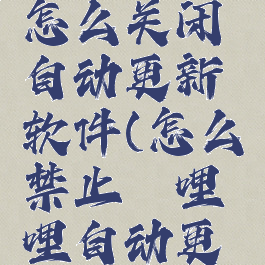 怎么关闭
自动更新
软件(怎么
禁止 哩
哩自动更